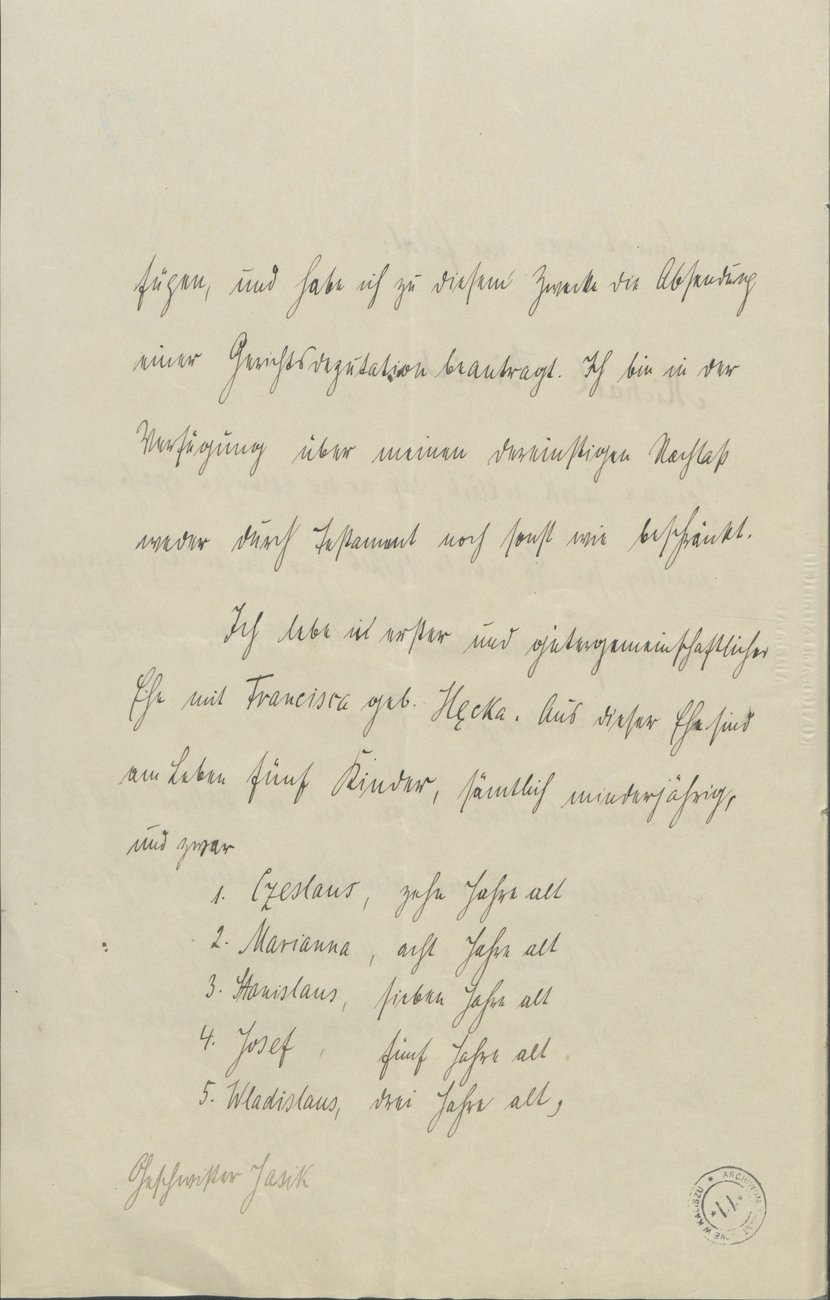 fügen, und habe ich zu diesem Zwecke die Absendung
einer Gerichtsdeputation beantragt. Ich bin in der
Verfügung über meinen dereinstigen Nachlaß
weder durch Testament noch sonst wie beschränkt.
Ich lebe in erster und gütergemeinschaftlicher
Ehe mit Francisca geb. Hęcka. Aus dieser Ehe sind
am Leben fünf Kinder, sämtlich minderjährig,
und zwar
1. Czeslaus, zehn Jahre alt
2. Marianna, acht Jahre alt
3. Stanislaus, sieben Jahre alt
4. Josef, fünf Jahre alt
5. Wladislaus, drei Jahre alt,
Geschwister Jasik
ARCHIWUM PAŃSTWOWE W KALISZU